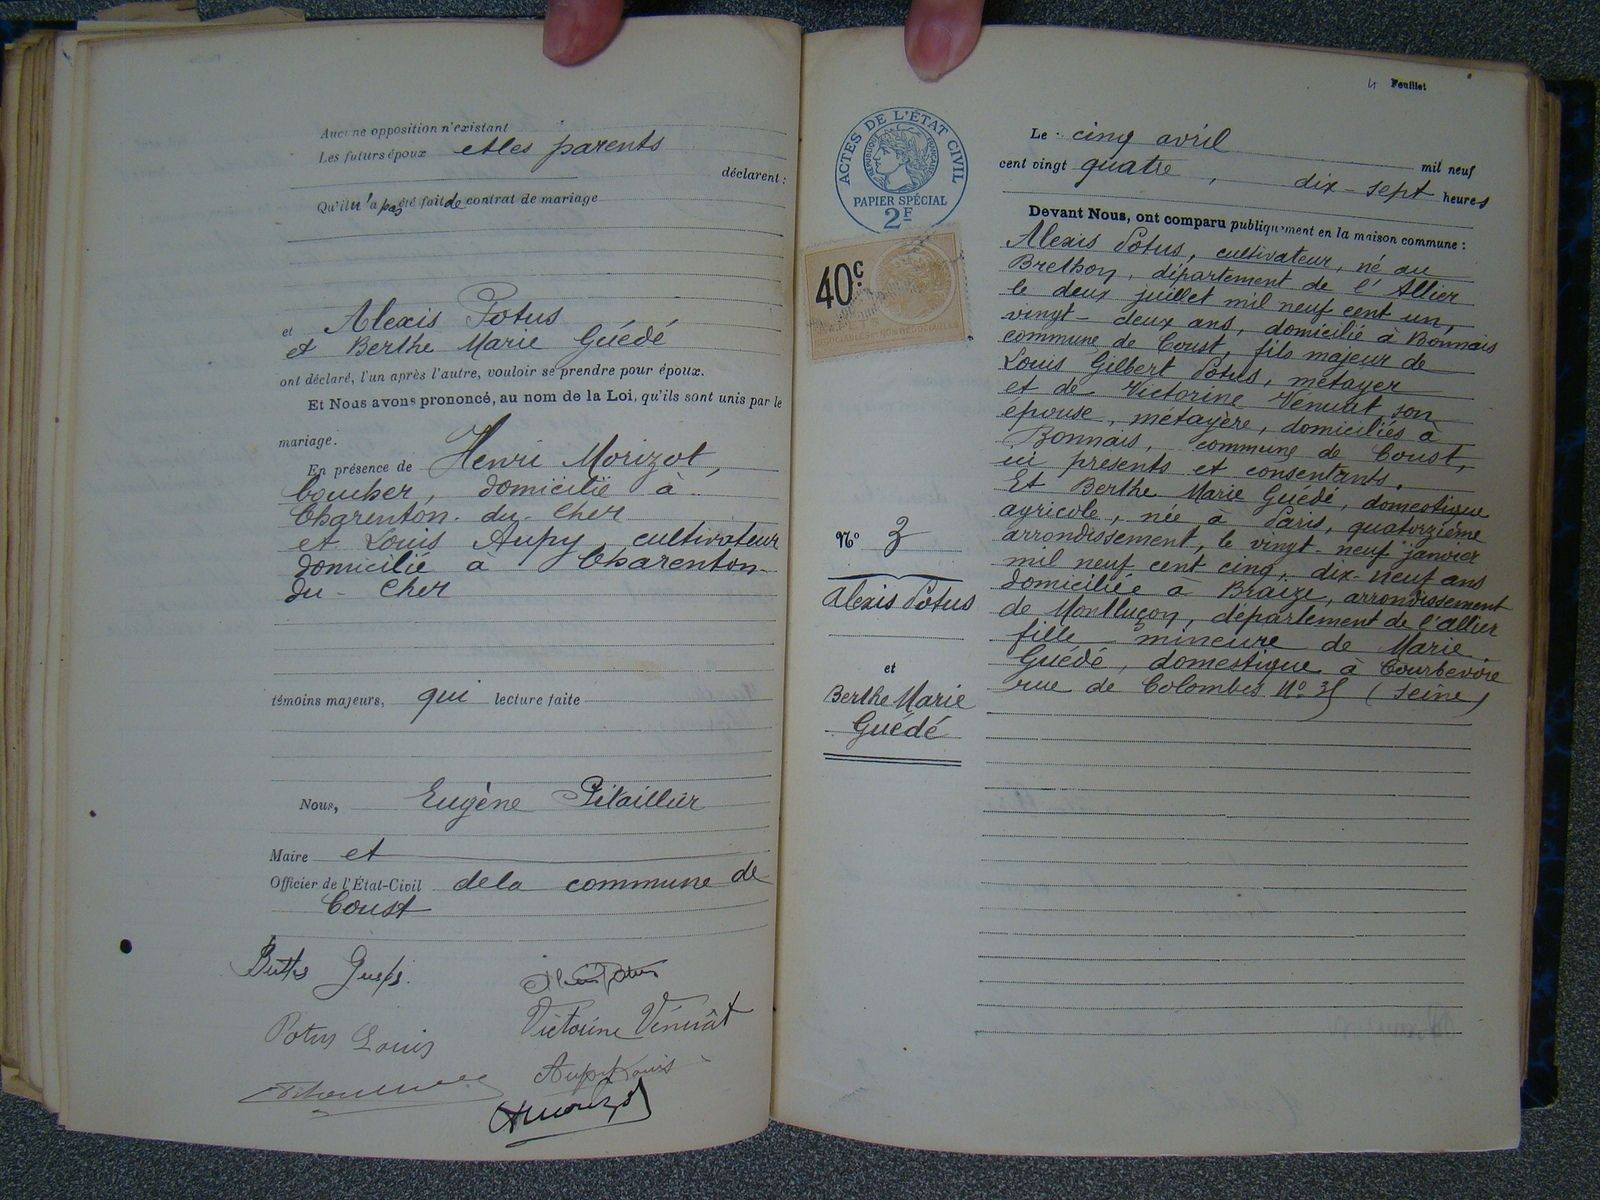 Aucune opposition n'existant
Les futurs époux et les parents
déclarent :
Qu'il n'a pas été fait de contrat de mariage
et Alexis Potus
et Berthe Marie Guédé
ont déclaré, l'un après l'autre, vouloir se prendre pour époux.
Et Nous avons prononcé, au nom de la Loi, qu'ils sont unis par le
mariage.
En présence de Henri Morizot,
boucher, domicilié à
Charenton-du-Cher
et Louis Aupy, cultivateur
domicilié à Charenton-
du-Cher
témoins majeurs, qui lecture faite
Nous, Eugène Pitaillier
Maire et
Officier de l'État-Civil de la commune de
Coust
Potus Louis
Victorine Vénuat
Aupy Louis
4 Feuillet
ACTES DE L'ÉTAT CIVIL
RÉPUBLIQUE FRANÇAISE
PAPIER SPÉCIAL
2F
40c
Le cinq avril
mil neuf
cent vingt quatre, dix-sept heures
Devant Nous, ont comparu publiquement en la maison commune :
Alexis Potus, cultivateur, né au
Brethon, département de l'Allier
le deux juillet mil neuf cent un,
vingt-deux ans, domicilié à Bonnais
commune de Coust, fils majeur de
Louis Gilbert Potus, métayer
et de Victorine Vénuat, son
épouse, métayère, domiciliés à
Bonnais, commune de Coust,
ici présents et consentants.
Et Berthe Marie Guédé, domestique
agricole, née à Paris, quatorzième
arrondissement, le vingt-neuf janvier
mil neuf cent cinq, dix-neuf ans
domiciliée à Braize, arrondissement
de Montluçon, département de l'Allier
fille mineure de Marie
Guédé, domestique à Courbevoie
rue de Colombes No (Seine)
No 3
Alexis Potus
et
Berthe Marie
Guédé